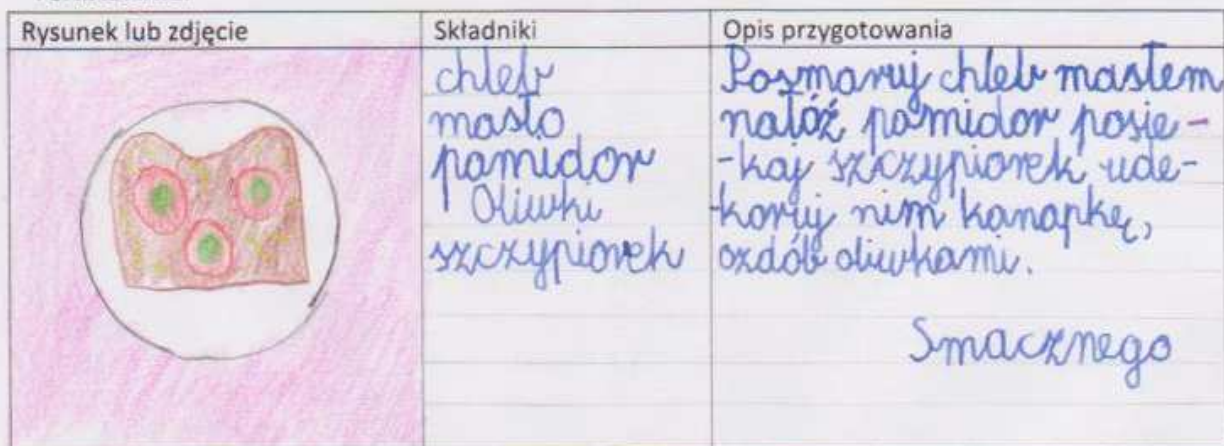 Rysunek lub zdjęcie
Składniki
Opis przygotowania
chleb
masło
pomidor
Oliwki
szczypiorek
Posmaruj chleb masłem
nałóż pomidor posie-
-kaj szczypiorek ude-
-koruj nim kanapkę,
ozdób oliwkami.
Smacznego